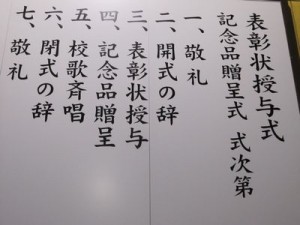 表彰状授与式
記念品贈呈式 式次第
一、敬礼
二、開式の辞
三、表彰状授与
四、記念品贈呈
五、校歌斉唱
六、閉式の辞
七、敬礼